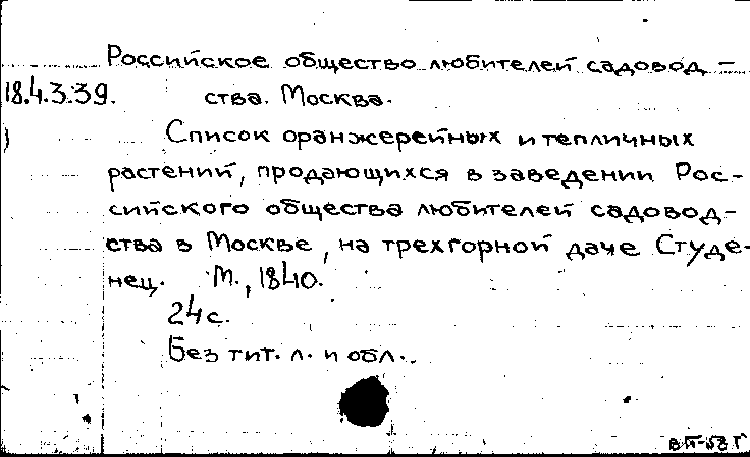 Российское общество любителей садовод-
18.4.3.39. ства. Москва.
Список оранжерейных и тепличных
растений, продающихся в заведении Рос-
сийского общества любителей садовод-
ства в Москве, на трехгорной даче Студе-
нец. М., 1840.
24 с.
Без тит. л. и обл.